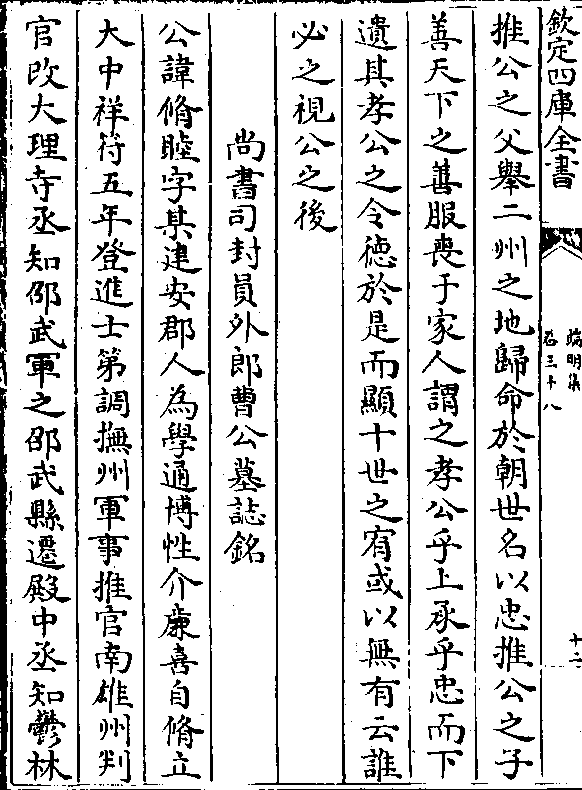 欽定四庫全書
端明集
卷三十八
十二
推公之父舉二州之地歸命於朝世名以忠推公之子
善天下之善服喪于家人謂之孝公乎上承乎忠而下
遺其孝公之令德於是而顯十世之宥或以無有云誰
必之視公之後
尚書司封員外郎曹公墓誌銘
公諱脩睦字其建安郡人為學通博性介廉喜自脩立
大中祥符五年登進士第調撫州軍事推官南雄州判
官改大理寺丞知邵武軍之邵武縣遷殿中丞知鬱林